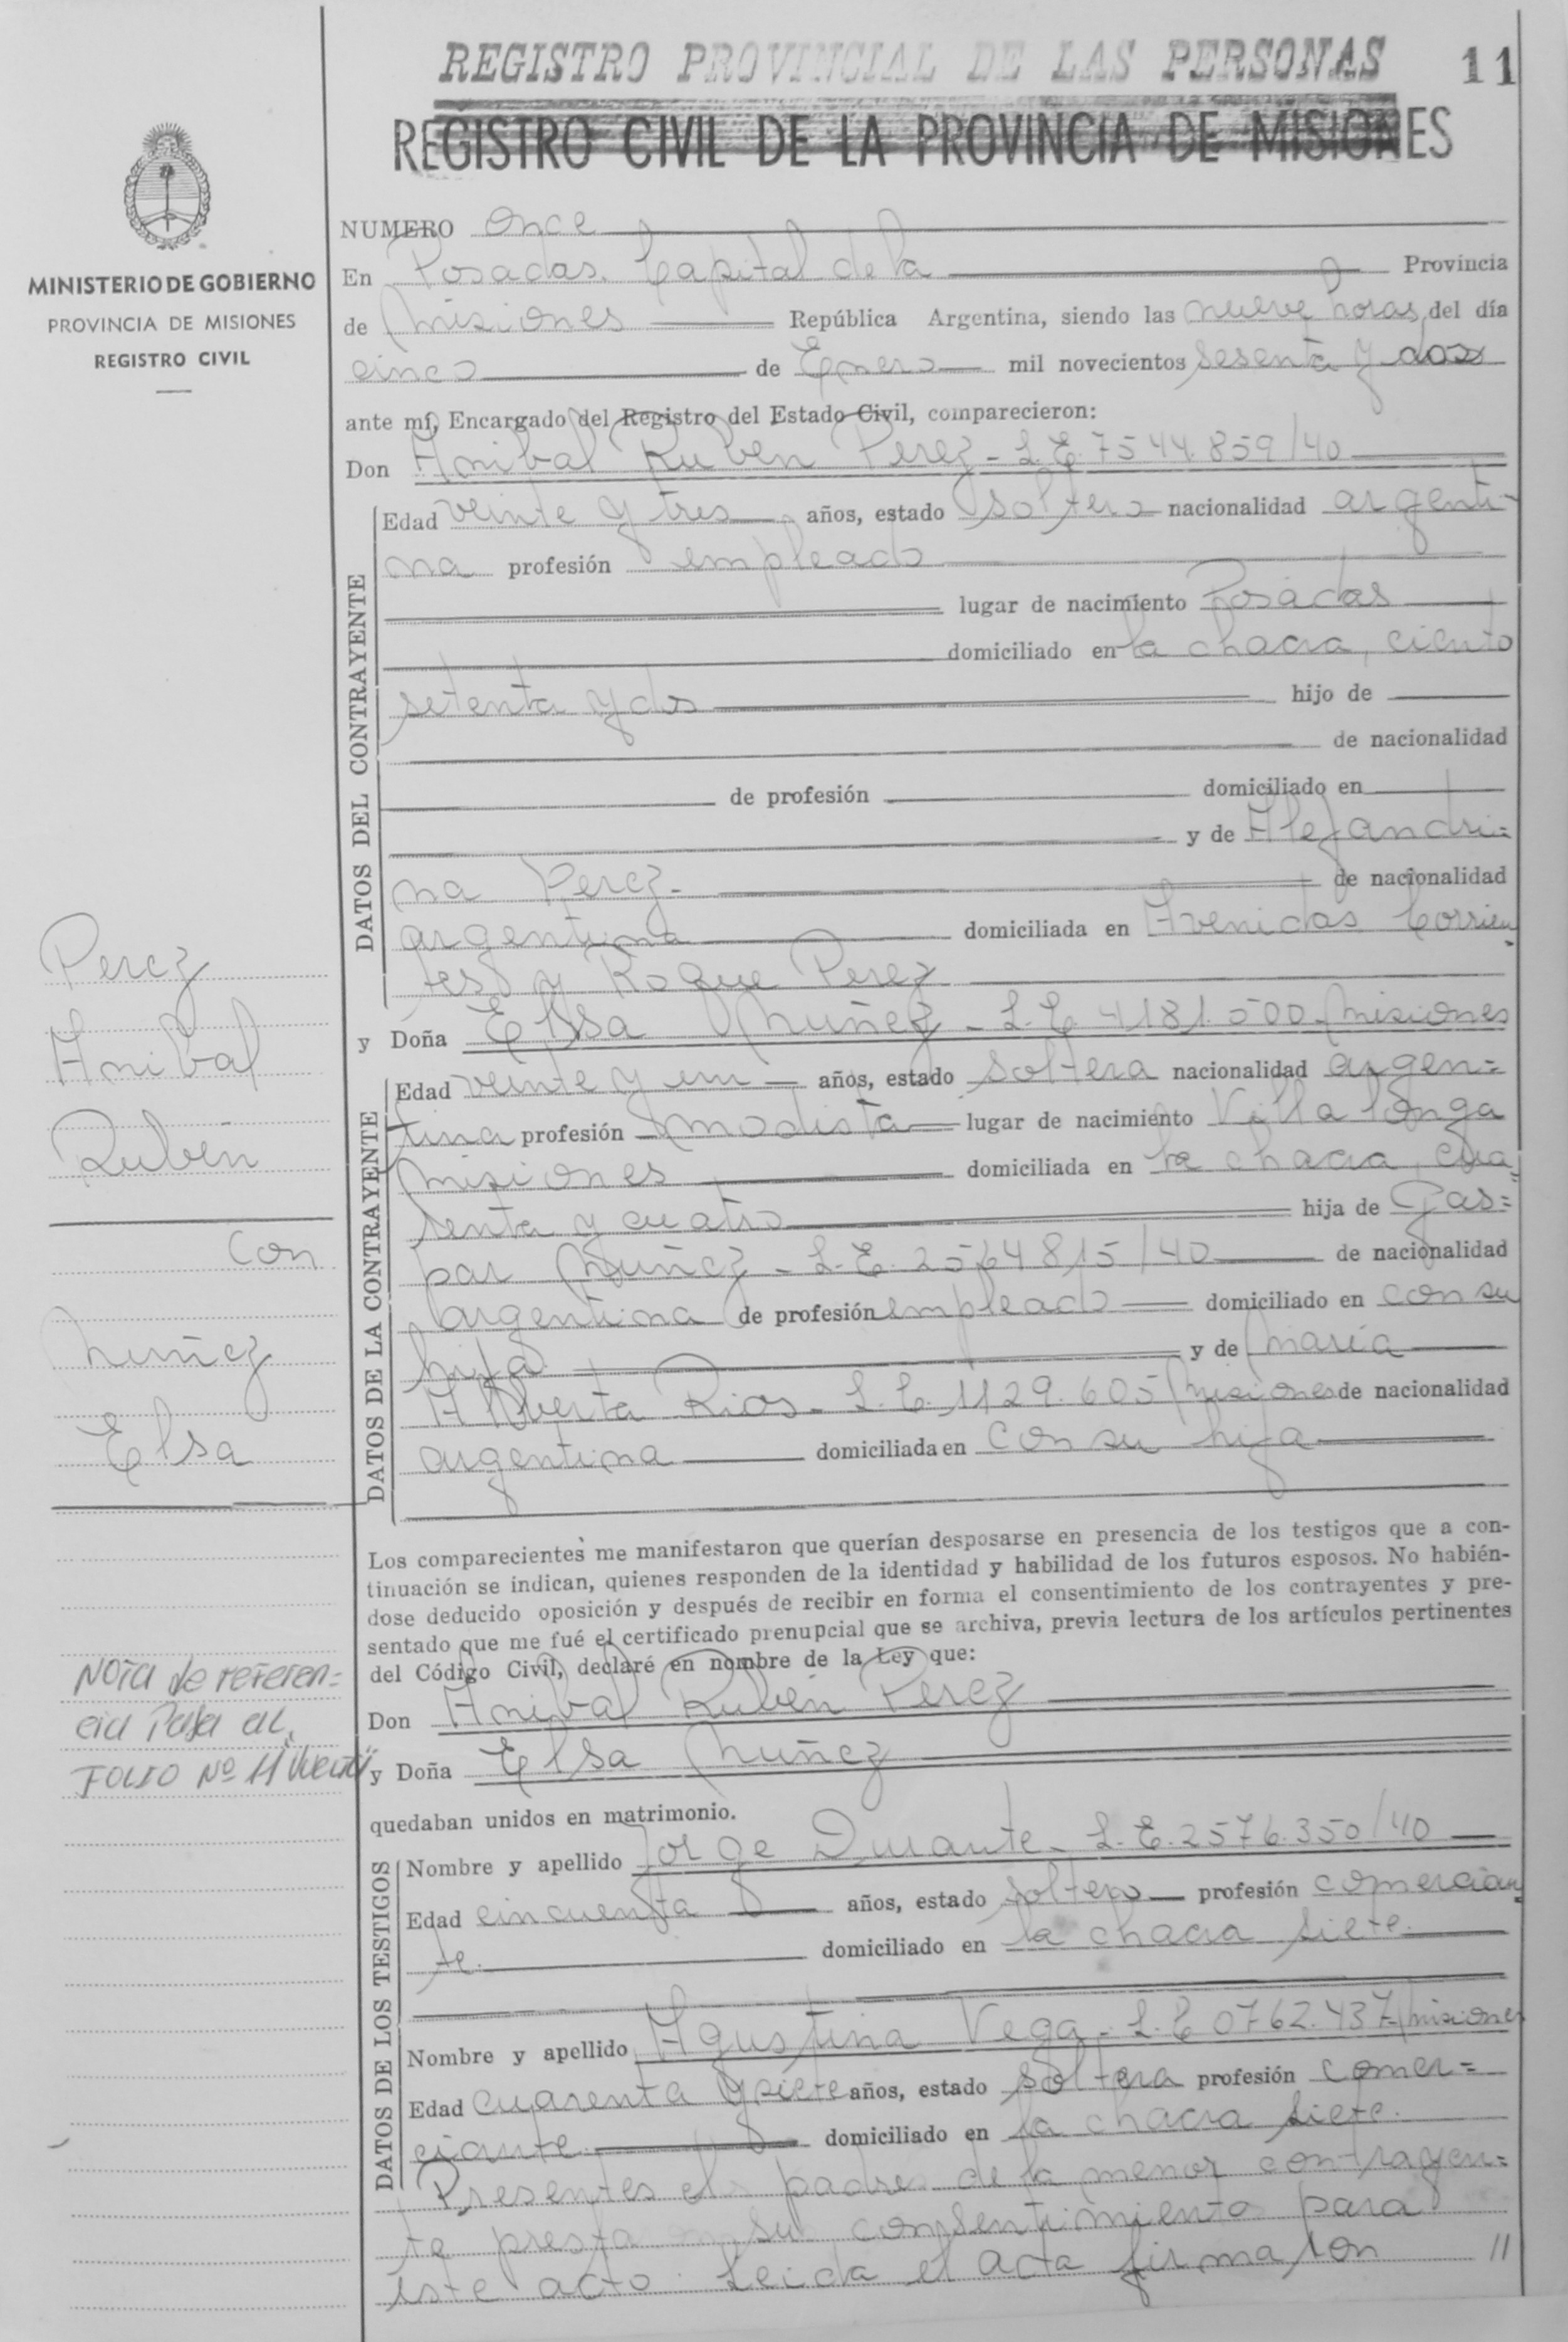 REGISTRO PROVINCIAL DE LAS PERSONAS 11
REGISTRO CIVIL DE LA PROVINCIA DE MISIONES
MINISTERIO DE GOBIERNO
PROVINCIA DE MISIONES
REGISTRO CIVIL
NUMERO Once
En Posadas, Capital de la Provincia
de Misiones República Argentina, siendo las nueve horas, del día
cinco de Enero mil novecientos sesenta y dos
ante mí, Encargado del Registro del Estado Civil, comparecieron:
Don Anibal Ruben Perez - L.E. 7544.859/40
DATOS DEL CONTRAYENTE
Edad veinte y tres años, estado soltero nacionalidad argenti-
na profesión empleado
lugar de nacimiento Posadas
domiciliado en la chacra, ciento
setenta y dos hijo de
de nacionalidad
de profesión domiciliado en
y de Alejandri=
na Perez. de nacionalidad
argentina domiciliada en Avenidas Corrien
tes y Roque Perez
y Doña Elsa Nuñez - L.C. 4181.500 Misiones
DATOS DE LA CONTRAYENTE
Edad veinte y un años, estado soltera nacionalidad argen=
tina profesión modista lugar de nacimiento Villa longa
Misiones domiciliada en la chacra, cua=
renta y cuatro hija de Gas=
par Nuñez - L.E. 2564815/40 de nacionalidad
argentina de profesión empleado domiciliado en con su
hija y de Maria
Alberta Rios - L.C. 1129.605 Misiones de nacionalidad
argentina domiciliada en con su hija
Perez
Anibal
Rubén
con
Nuñez
Elsa
Los comparecientes me manifestaron que querían desposarse en presencia de los testigos que a con-
tinuación se indican, quienes responden de la identidad y habilidad de los futuros esposos. No habién-
dose deducido oposición y después de recibir en forma el consentimiento de los contrayentes y pre-
sentado que me fué el certificado prenupcial que se archiva, previa lectura de los artículos pertinentes
del Código Civil, declaré en nombre de la Ley que:
Don Anibal Rubén Perez
y Doña Elsa Nuñez
quedaban unidos en matrimonio.
NOTA de referen=
cia Pasa al
FOLIO Nº 11
DATOS DE LOS TESTIGOS
Nombre y apellido Jorge Durante - L.E. 2576.350/40
Edad cincuenta años, estado soltero profesión comercian
te. domiciliado en la chacra siete.
Nombre y apellido Agustina Vega - L.C 0762.437 Misiones
Edad cuarenta y siete años, estado soltera profesión comer=
ciante. domiciliado en la chacra siete.
Presentes padres de la menor contrayen=
te prestan su consentimiento para
este acto. Leida el acta firma ron //